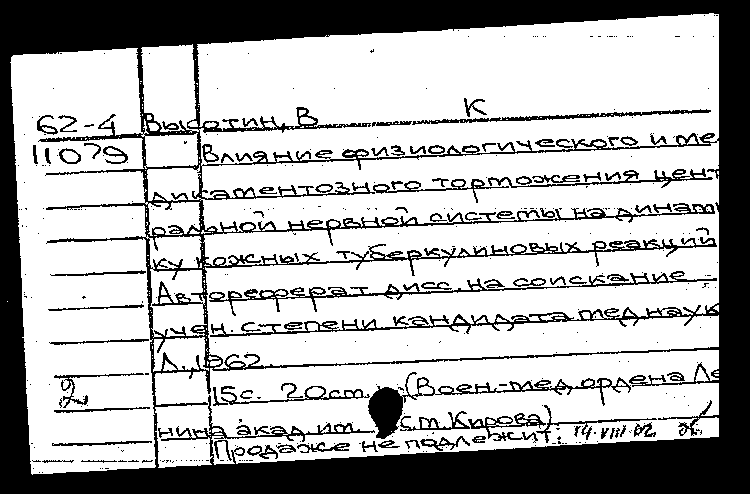 62-4 Высотин, В К
11079 Влияние физиологического и ме
дикаментозного торможения цент
ральной нервной системы на динами
ку кожных туберкулиновых реакций
Автореферат дисс. на соискание
учен. степени кандидата мед наук
Л., 1962.
2 15с. 20см. (Воен.-мед. ордена Ле
нина акад. им. С.М. Кирова)
Продаже не подлежит. 14.VIII 62.